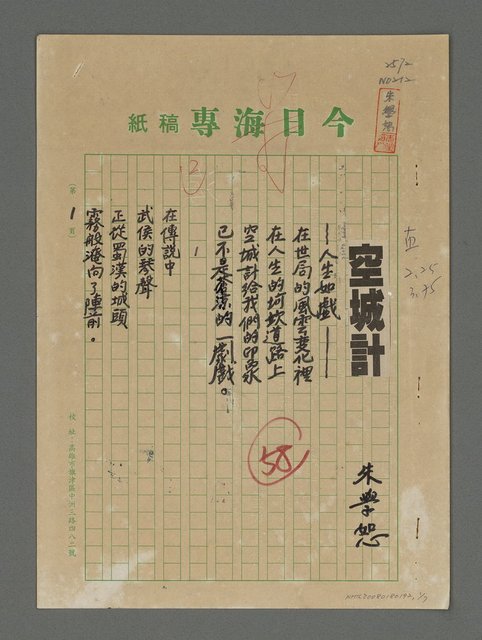 25/2
NO212
朱學恕
今日海專稿紙
空城計
朱學恕
——人生如戲——
在世局的風雲變化裡
在人生的坷坎道路上
空城計給我們的印象
已不是蒼涼的一齣戲。
1
在傳說中
武侯的琴聲
正從蜀漢的城頭
霧般瀉向了陣前。
58
2.25
3.75
(第1頁)
校址:高雄市旗津區中洲三路四八二號
NMTL20080180192, 1/7